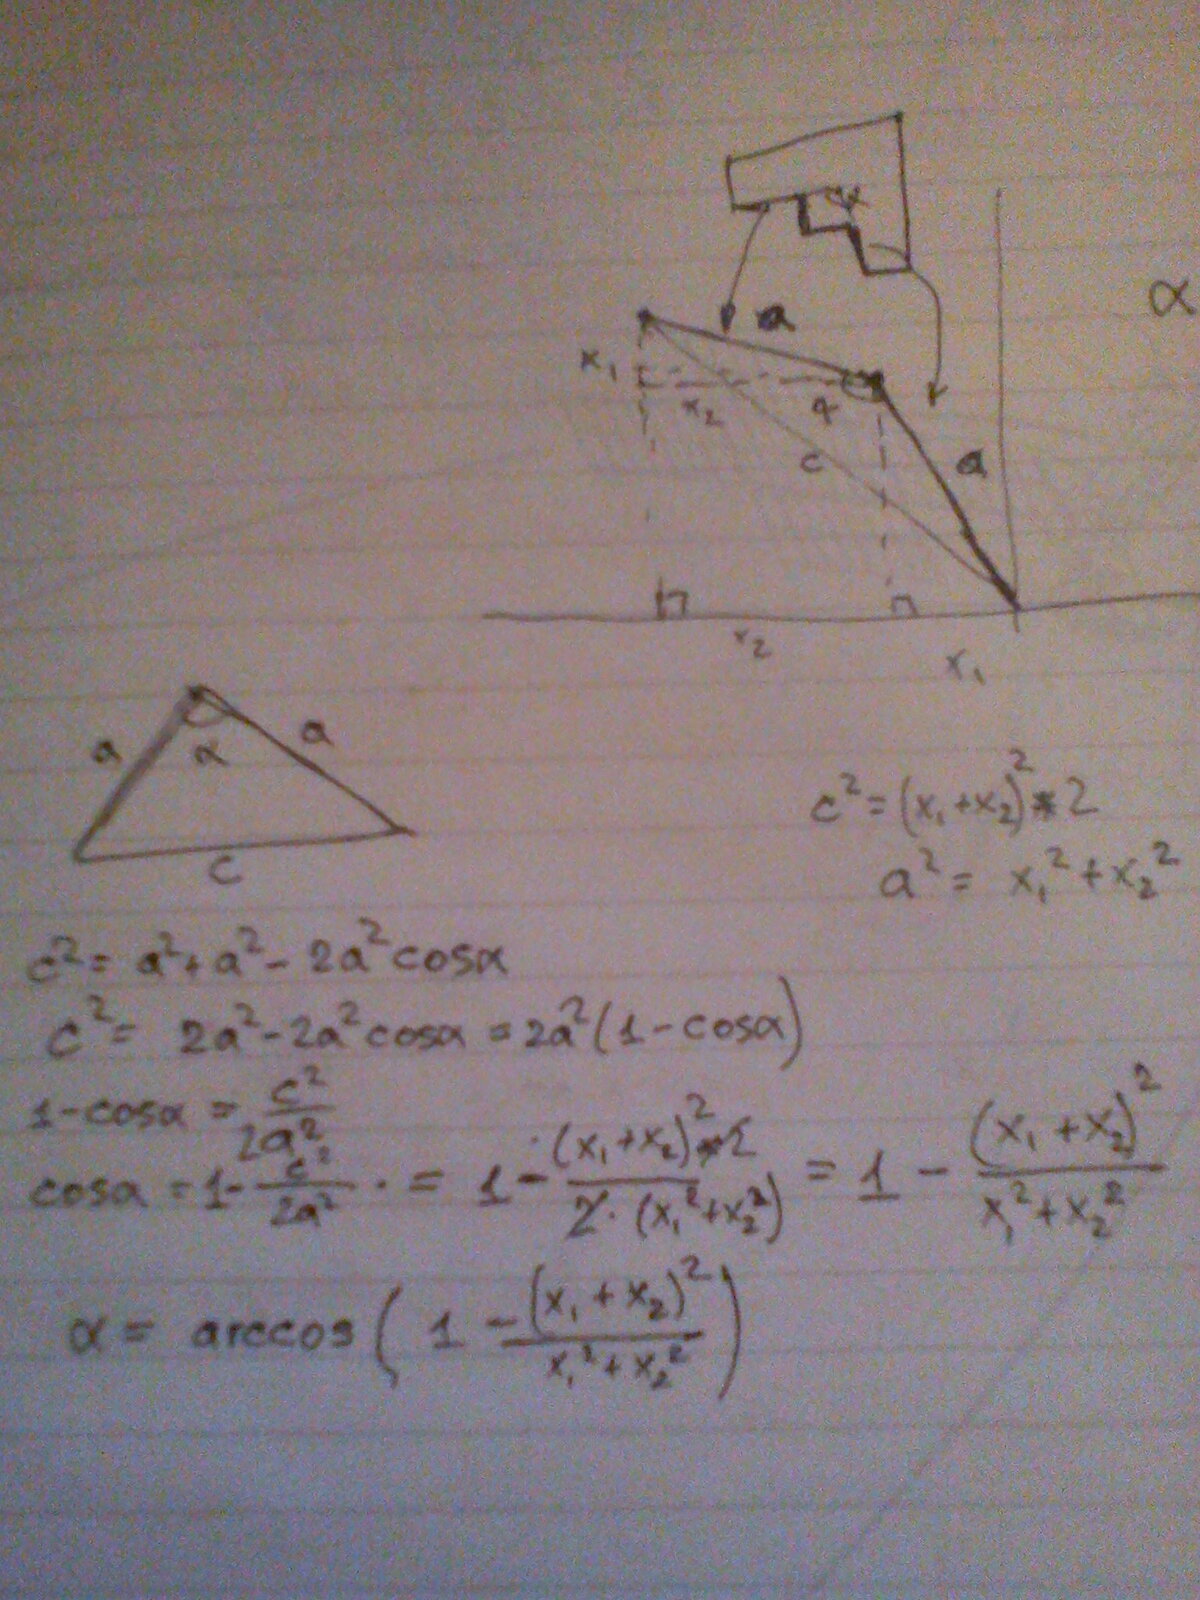 α
α
a
x₁
x₂
α
c
a
x₂
x₁
a
α
a
c
c² = (x₁+x₂)² * 2
a² = x₁² + x₂²
c² = a² + a² - 2a² cosα
c² = 2a² - 2a² cosα = 2a² (1 - cosα)
1 - cosα = c² / 2a²
cosα = 1 - c² / 2a² · = 1 - (x₁+x₂)² * 2 / 2 · (x₁² + x₂²) = 1 - (x₁ + x₂)² / x₁² + x₂²
α = arccos ( 1 - (x₁ + x₂)² / x₁² + x₂² )